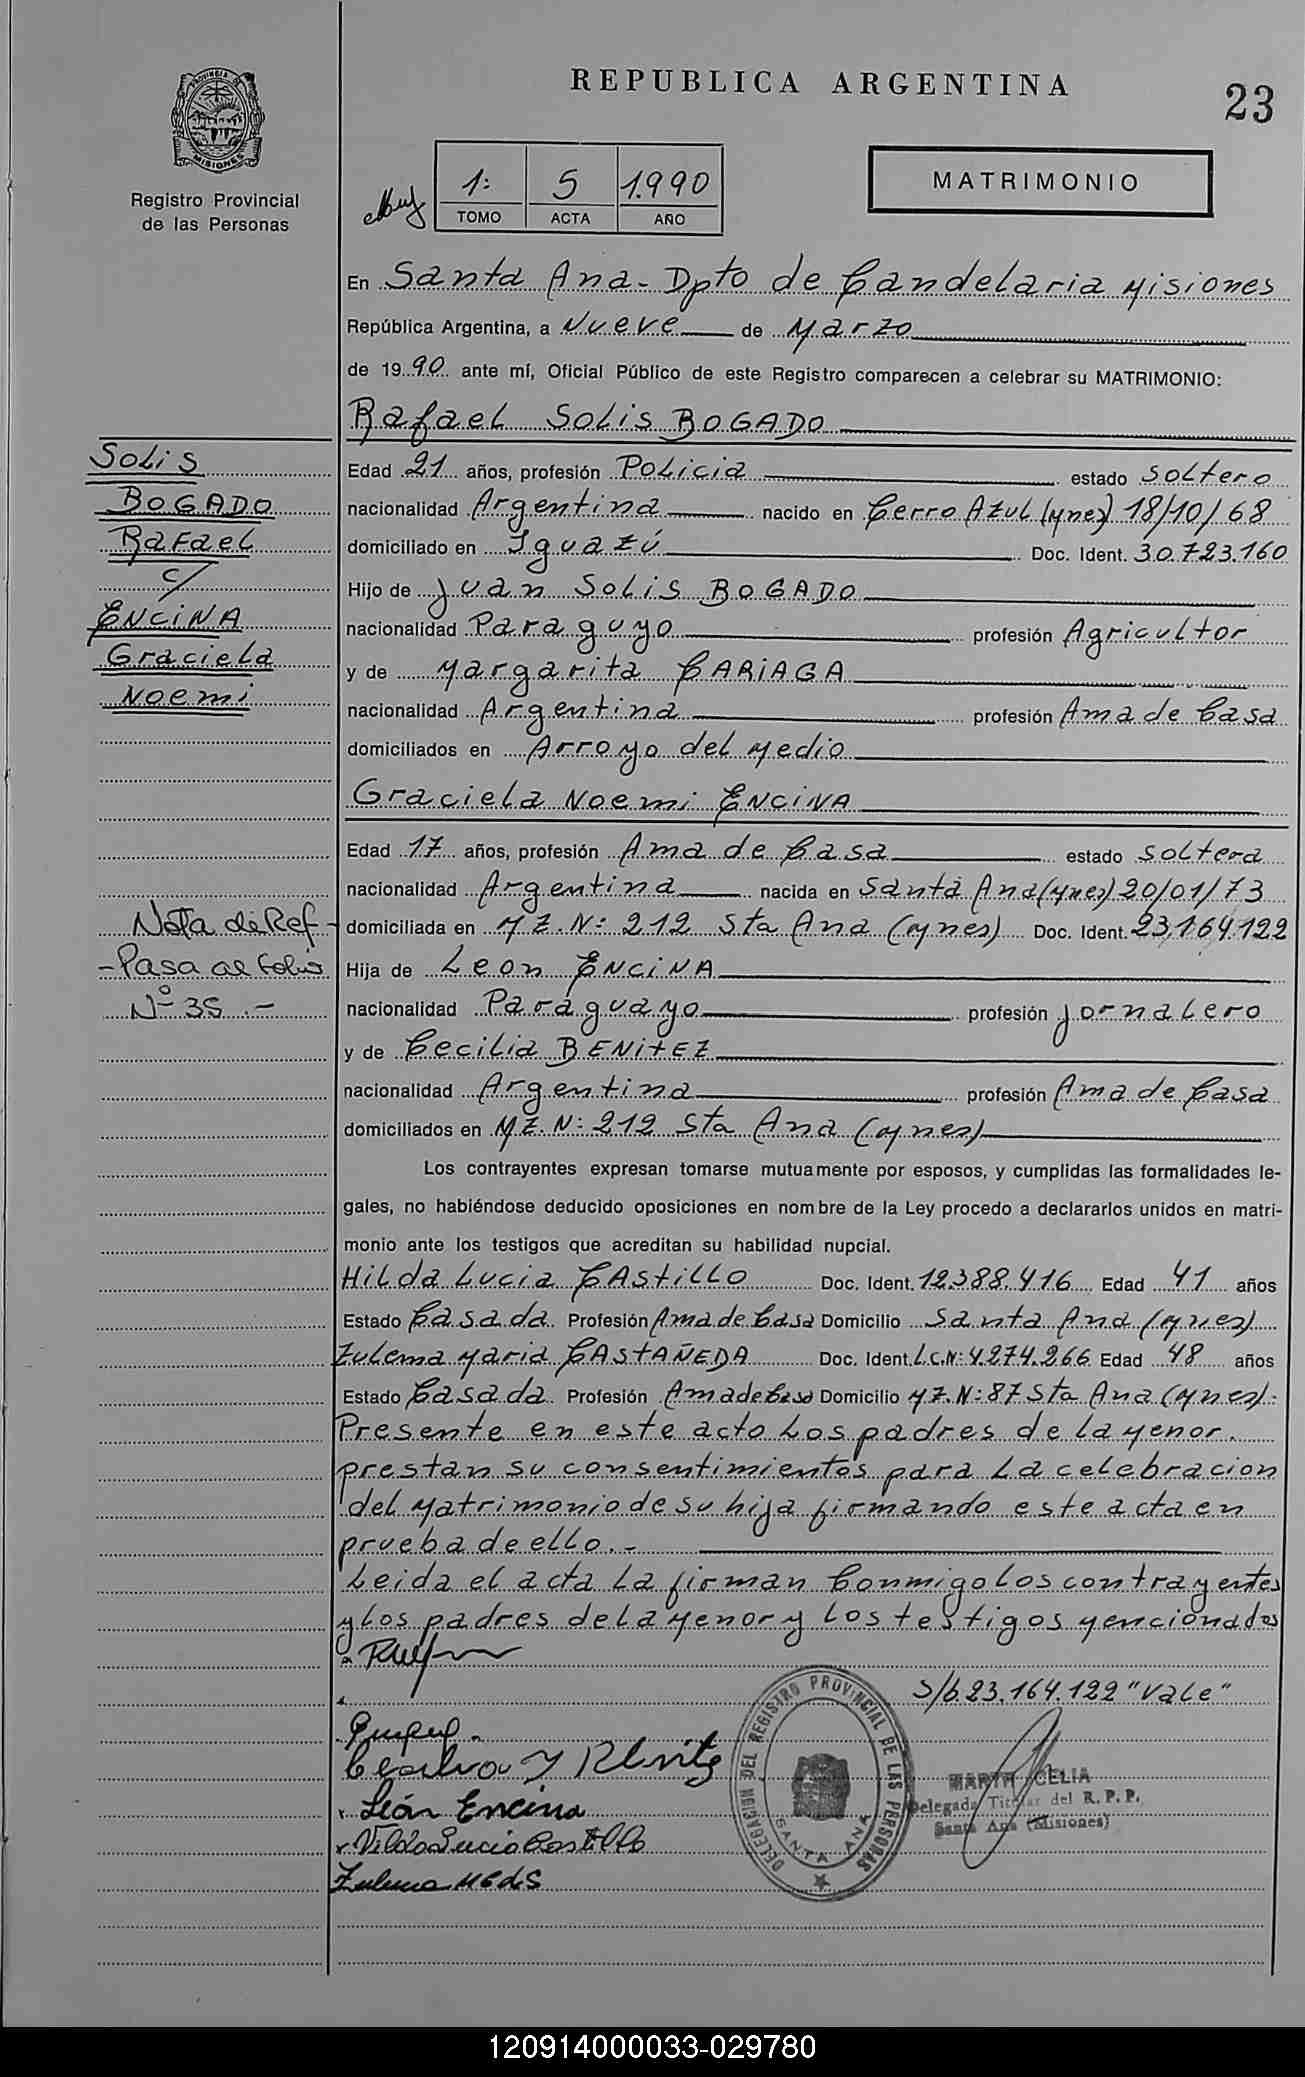 REPUBLICA ARGENTINA
23
PROVINCIA DE
MISIONES
Registro Provincial
de las Personas
1: 5 1.990
TOMO ACTA AÑO
MATRIMONIO
En Santa Ana - Dpto de Candelaria Misiones
República Argentina, a Nueve de Marzo
de 19 90 ante mí, Oficial Público de este Registro comparecen a celebrar su MATRIMONIO:
Rafael SOLIS BOGADO
SOLIS
BOGADO
RAFAEL
c/
ENCINA
Graciela
Noemi
Edad 21 años, profesión Policia estado soltero
nacionalidad Argentina nacido en Cerro Azul (Mnes) 18/10/68
domiciliado en Iguazú Doc. Ident. 30.723.160
Hijo de Juan SOLIS BOGADO
nacionalidad Paraguyo profesión Agricultor
y de Margarita CARIAGA
nacionalidad Argentina profesión Ama de Casa
domiciliados en Arroyo del Medio
Graciela Noemi ENCINA
Edad 17 años, profesión Ama de Casa estado soltera
nacionalidad Argentina nacida en Santa Ana (Mnes) 20/01/73
domiciliada en MZ. N: 212 Sta Ana (Mnes) Doc. Ident. 23.164.122
Nota de Ref -
- Pasa al folio
Nº 35 .-
Hija de Leon ENCINA
nacionalidad Paraguayo profesión Jornalero
y de Cecilia BENITEZ
nacionalidad Argentina profesión Ama de Casa
domiciliados en MZ. N: 212 Sta Ana (Mnes)
Los contrayentes expresan tomarse mutuamente por esposos, y cumplidas las formalidades le-
gales, no habiéndose deducido oposiciones en nombre de la Ley procedo a declararlos unidos en matri-
monio ante los testigos que acreditan su habilidad nupcial.
HILDA LUCIA CASTILLO Doc. Ident. 12.388.416 Edad 41 años
Estado Casada Profesión Ama de Casa Domicilio Santa Ana (Mnes)
Zulema Maria CASTAÑEDA Doc. Ident. L.C.N: 4.274.266 Edad 48 años
Estado Casada Profesión Ama de Casa Domicilio MZ. N: 87 Sta Ana (Mnes):
Presente en este acto Los padres de la Menor.
prestan su consentimientos para La celebracion
del Matrimonio de su hija firmando este acta en
prueba de ello.-
Leida el acta La firman Conmigo Los contrayentes
y Los padres de la Menor y Los testigos Mencionados
S/b. 23.164.122 "Vale"
León Encina
Hilda Lucia Castillo
DELEGACION DEL REGISTRO PROVINCIAL DE LAS PERSONAS
SANTA ANA
CELIA
Delegada Titular del R. P. P.
Santa Ana (Misiones)
120914000033-029780